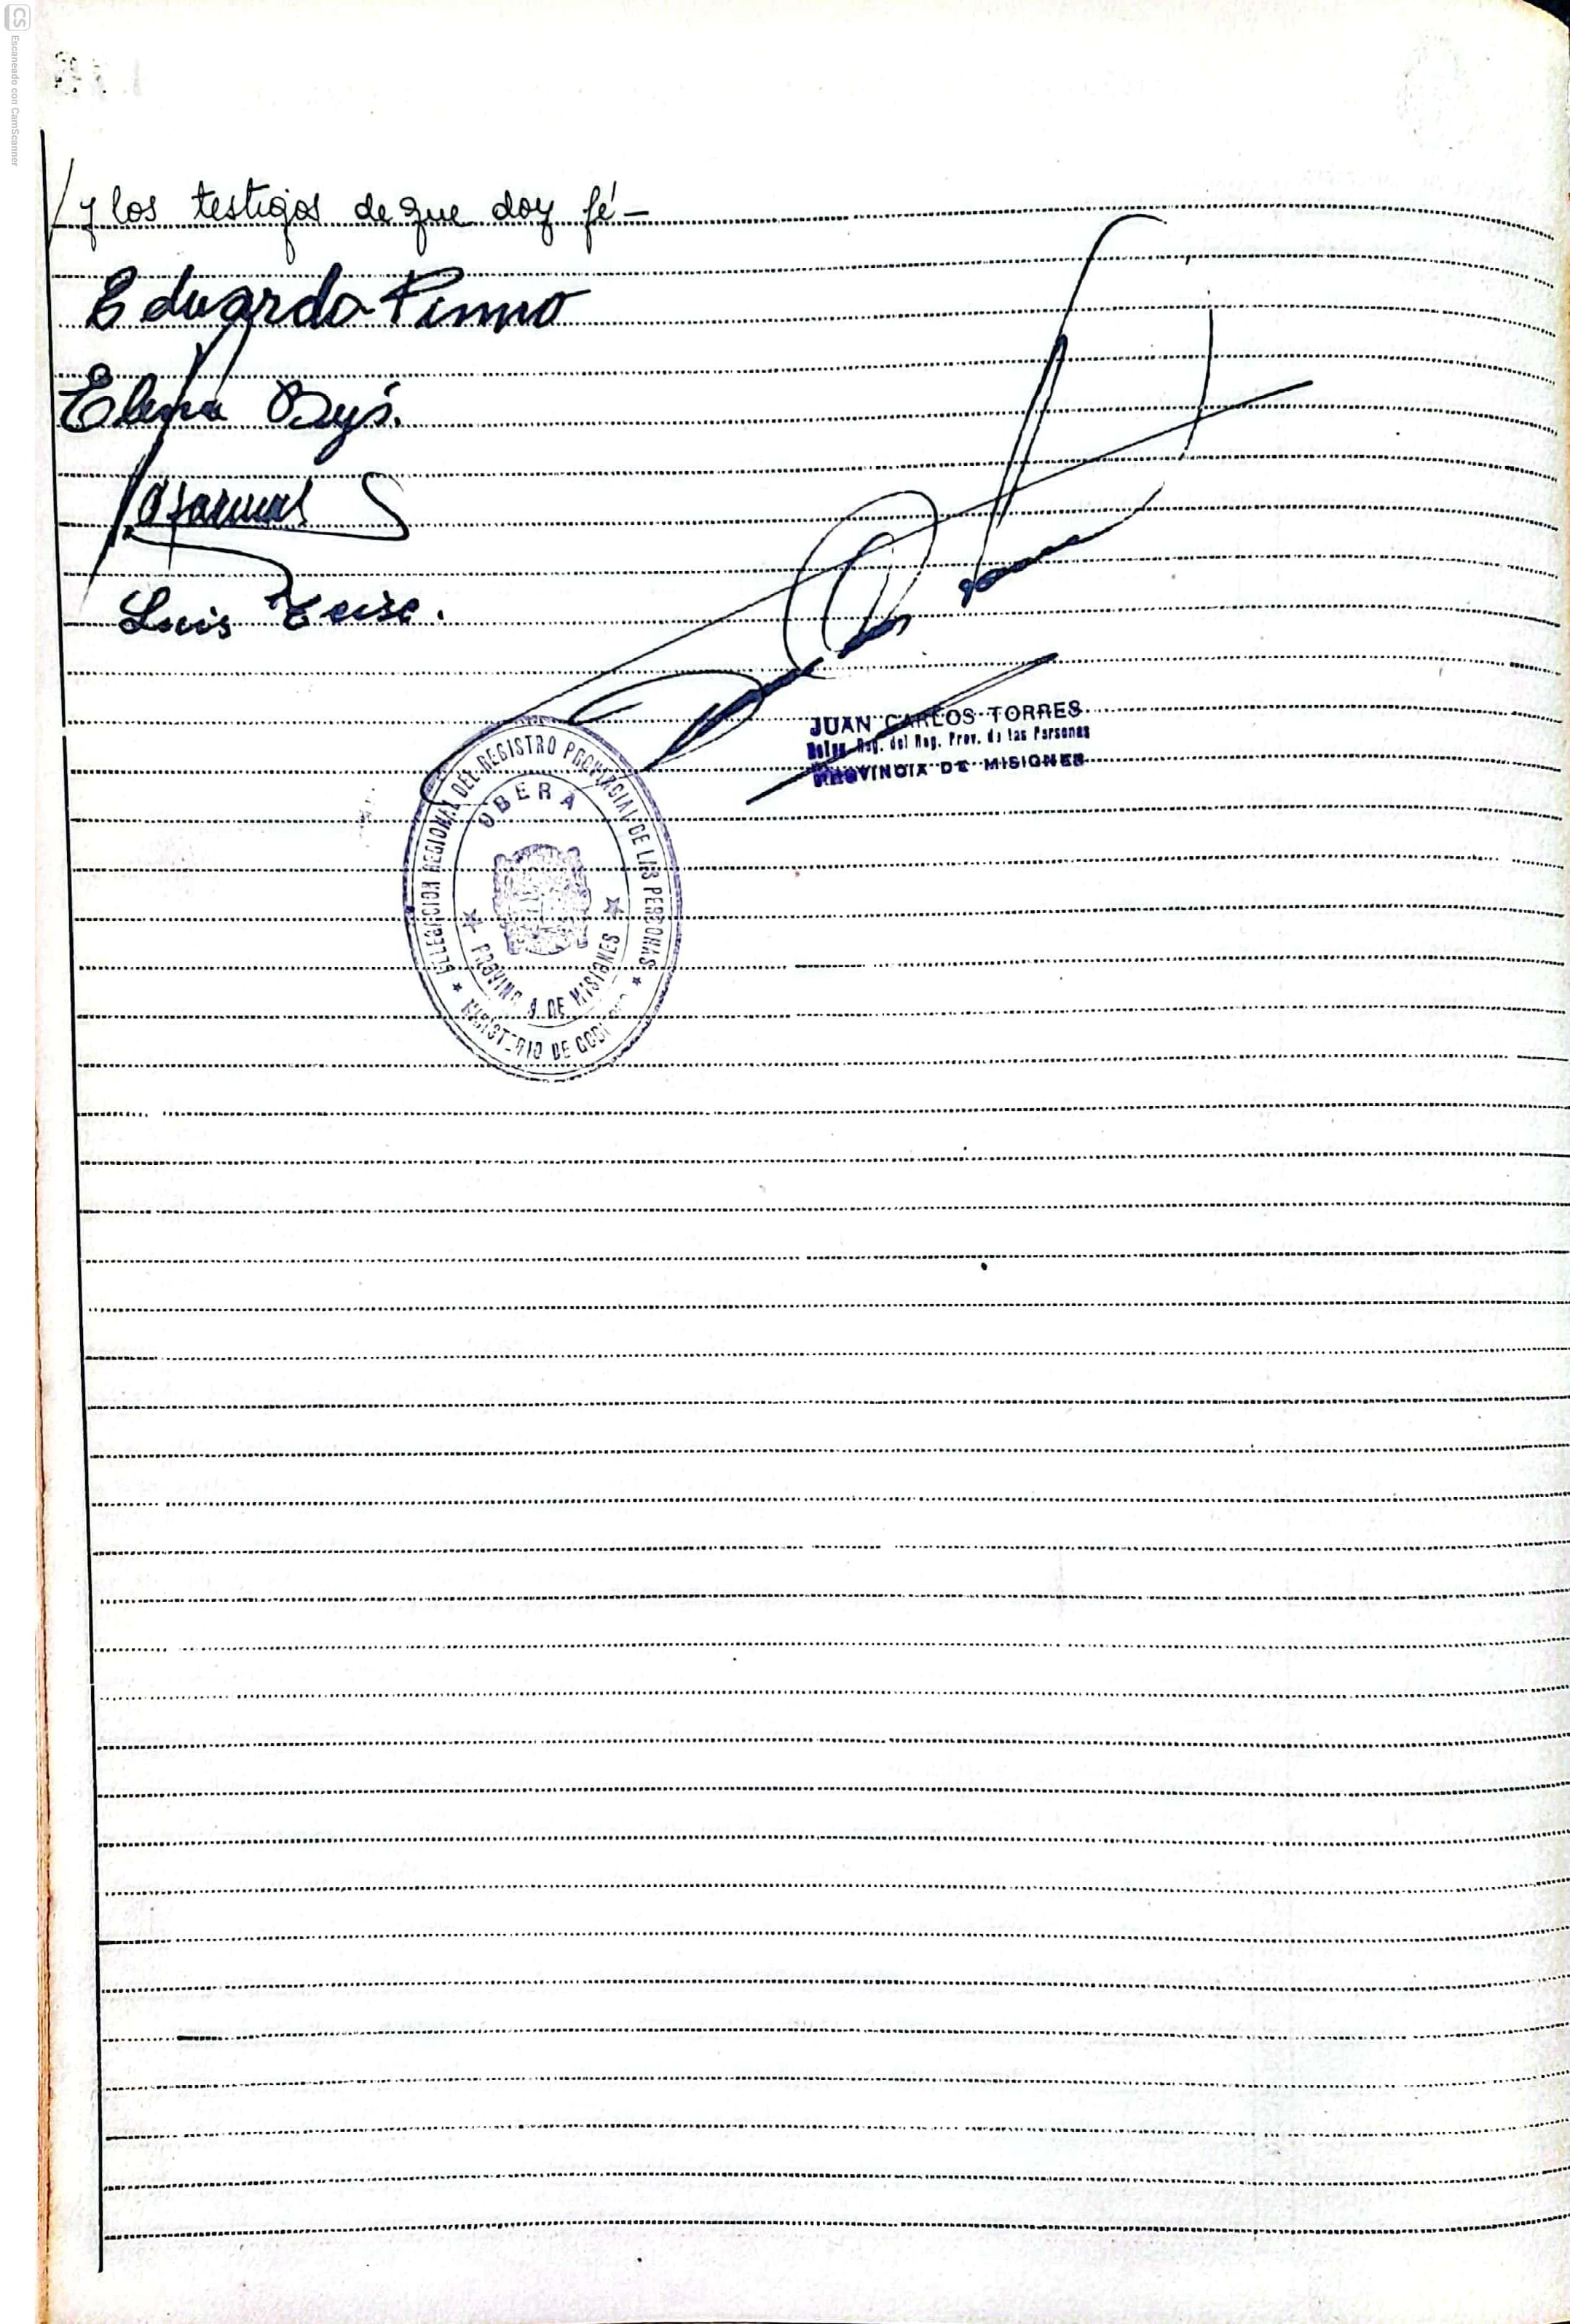 CS Escaneado con CamScanner
/ y los testigos de que doy fé —
Eduardo Pinno
Elena
Luis
JUAN CARLOS TORRES
Reg. del Reg. Prov. de las Personas
PROVINCIA DE MISIONES
DELEGACION REGIONAL DEL REGISTRO PROVINCIAL DE LAS PERSONAS
OBERA
PROVINCIA DE MISIONES
MINISTERIO DE GOBIERNO